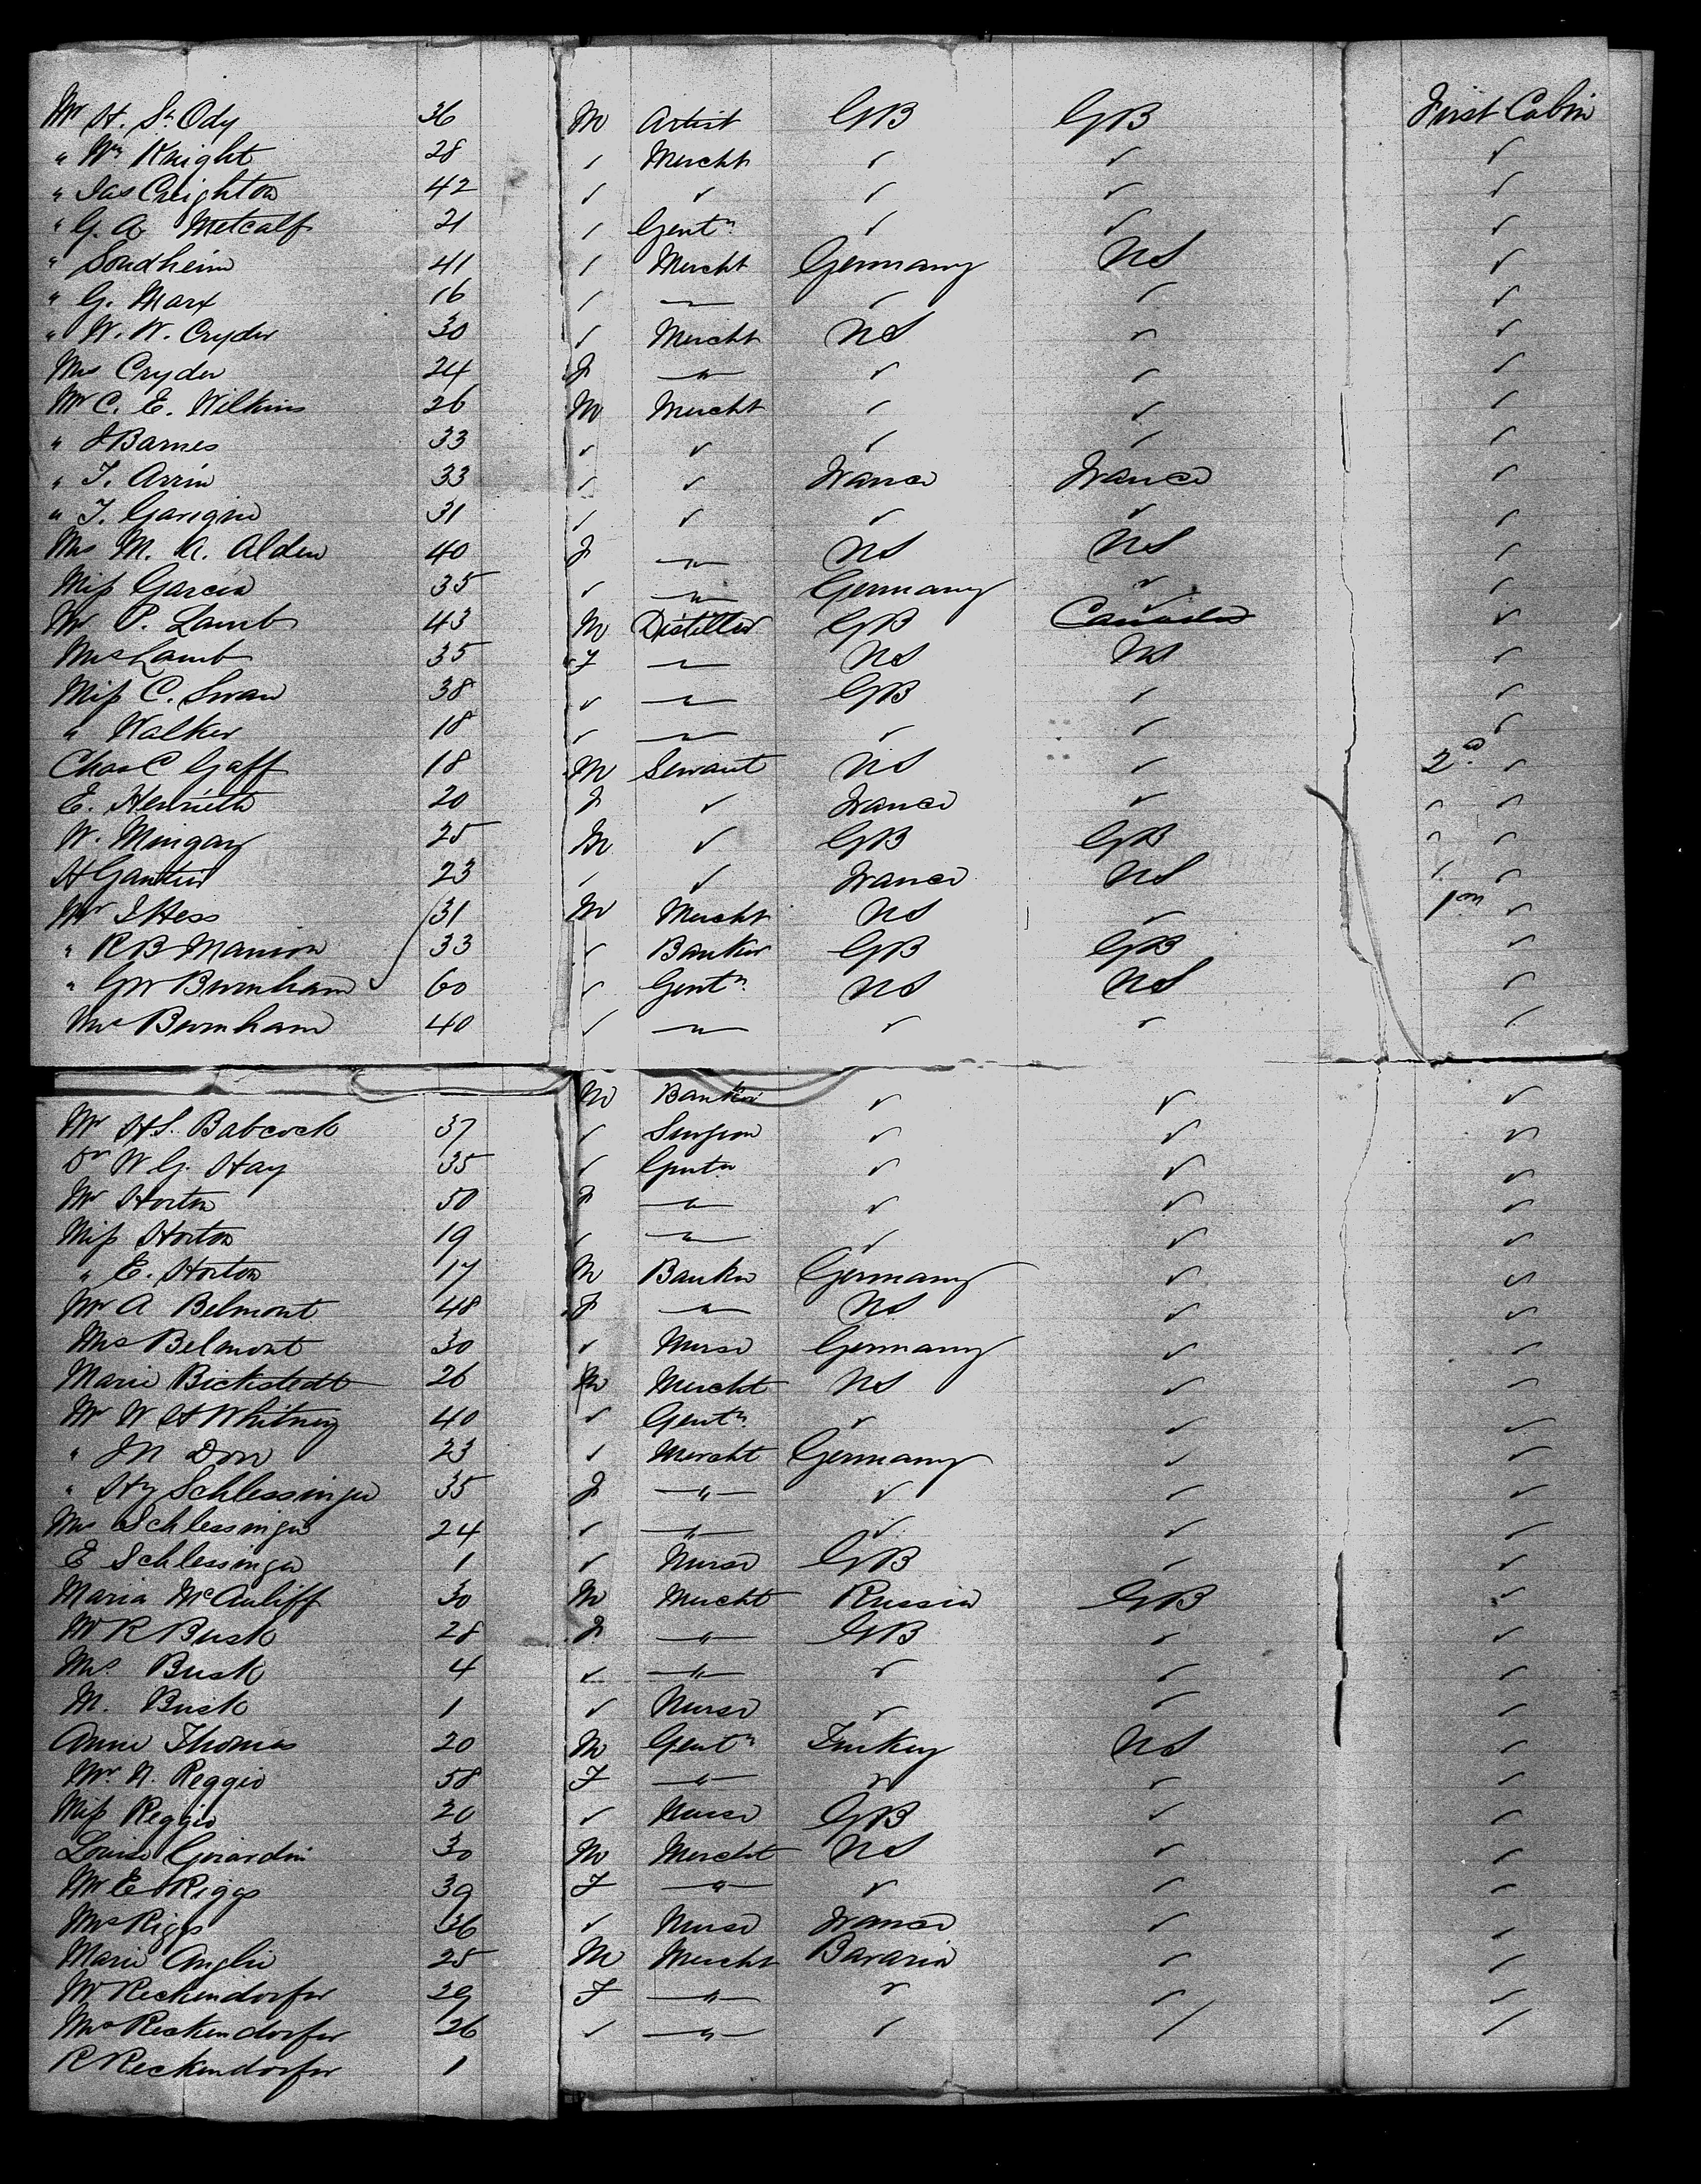 Mr H. St Ody 36 M Artist GB GB First Cabin
" Wm Knight 28 ✓ Mercht ✓ ✓ ✓
" Jas Creighton 42 ✓ ✓ ✓ ✓ ✓
" G. A. Metcalf 21 ✓ Gentn ✓ ✓ ✓
" Sondheim 41 ✓ Mercht Germany US ✓
" G. Marx 16 ✓ — " — ✓ ✓ ✓
" W. W. Cryder 30 ✓ Mercht US ✓ ✓
Mrs Cryder 24 F — " — ✓ ✓ ✓
Mr C. E. Wilkins 26 M Mercht ✓ ✓ ✓
" J Barnes 33 ✓ ✓ ✓ ✓ ✓
" T. Arrin 33 ✓ ✓ France France ✓
" T. Garigue 31 ✓ ✓ ✓ ✓ ✓
Mrs M. A. Alden 40 F — " — US US ✓
Miss Garcia 35 ✓ — " — Germany ✓ ✓
Mr P. Lamb 43 M Distiller GB Canada ✓ ✓
Mrs Lamb 35 F — " — US US ✓
Miss C. Swan 38 ✓ — " — GB ✓ ✓
" Walker 18 ✓ — " — ✓ ✓ ✓
Chas C Gaff 18 M Servant US ✓ 2nd ✓
E. Henrietta 20 F ✓ France ✓ ✓ ✓
W. Mingay 25 M ✓ GB GB ✓ ✓
H Gautier 23 ✓ ✓ France US ✓ ✓
Mr I Hess 31 M Mercht US ✓ 1st ✓
" R B Manson 33 ✓ Banker GB GB ✓
" GW Burnham 60 ✓ Gentn US US ✓
Mrs Burnham 40 ✓ — " — ✓ ✓ ✓
M Banker ✓ ✓ ✓
Mr H S. Babcock 37 ✓ Surgeon ✓ ✓ ✓
Dr W G. Hay 35 ✓ Gentn ✓ ✓ ✓
Mr Horton 50 F — " — ✓ ✓ ✓
Miss Horton 19 ✓ — " — ✓ ✓ ✓
" E. Horton 17 M Banker Germany ✓ ✓
Mr A Belmont 48 F — " — US ✓ ✓
Mrs Belmont 30 ✓ Nurse Germany ✓ ✓
Marie Bickstedt 26 M Mercht US ✓ ✓
Mr W H Whitney 40 ✓ Gentn ✓ ✓ ✓
" J N Dow 23 ✓ Mercht Germany ✓ ✓
" Hy Schlessinger 35 F — " — ✓ ✓ ✓
Mrs Schlessinger 24 ✓ — " — ✓ ✓ ✓
E Schlessinger 1 ✓ Nurse GB ✓ ✓
Maria McAuliff 30 M Mercht Russia GB ✓
Mr R Busk 28 F — " — GB ✓ ✓
Mrs Busk 4 ✓ — " — ✓ ✓ ✓
M. Busk 1 ✓ Nurse ✓ ✓ ✓
Annie Thomas 20 M Gentn Turkey US ✓
Mr. N. Reggio 58 F — " — ✓ ✓ ✓
Miss Reggio 20 ✓ Nurse GB ✓ ✓
Louise Girardin 30 M Mercht US ✓ ✓
Mr E Riggs 39 F — " — ✓ ✓ ✓
Mrs Riggs 36 ✓ Nurse France ✓ ✓
Marie Anglie 25 M Mercht Bavaria ✓ ✓
Mr Reckendorfer 29 F — " — ✓ ✓ ✓
Mrs Reckendorfer 26 ✓ — " — ✓ ✓ ✓
R Reckendorfer 1